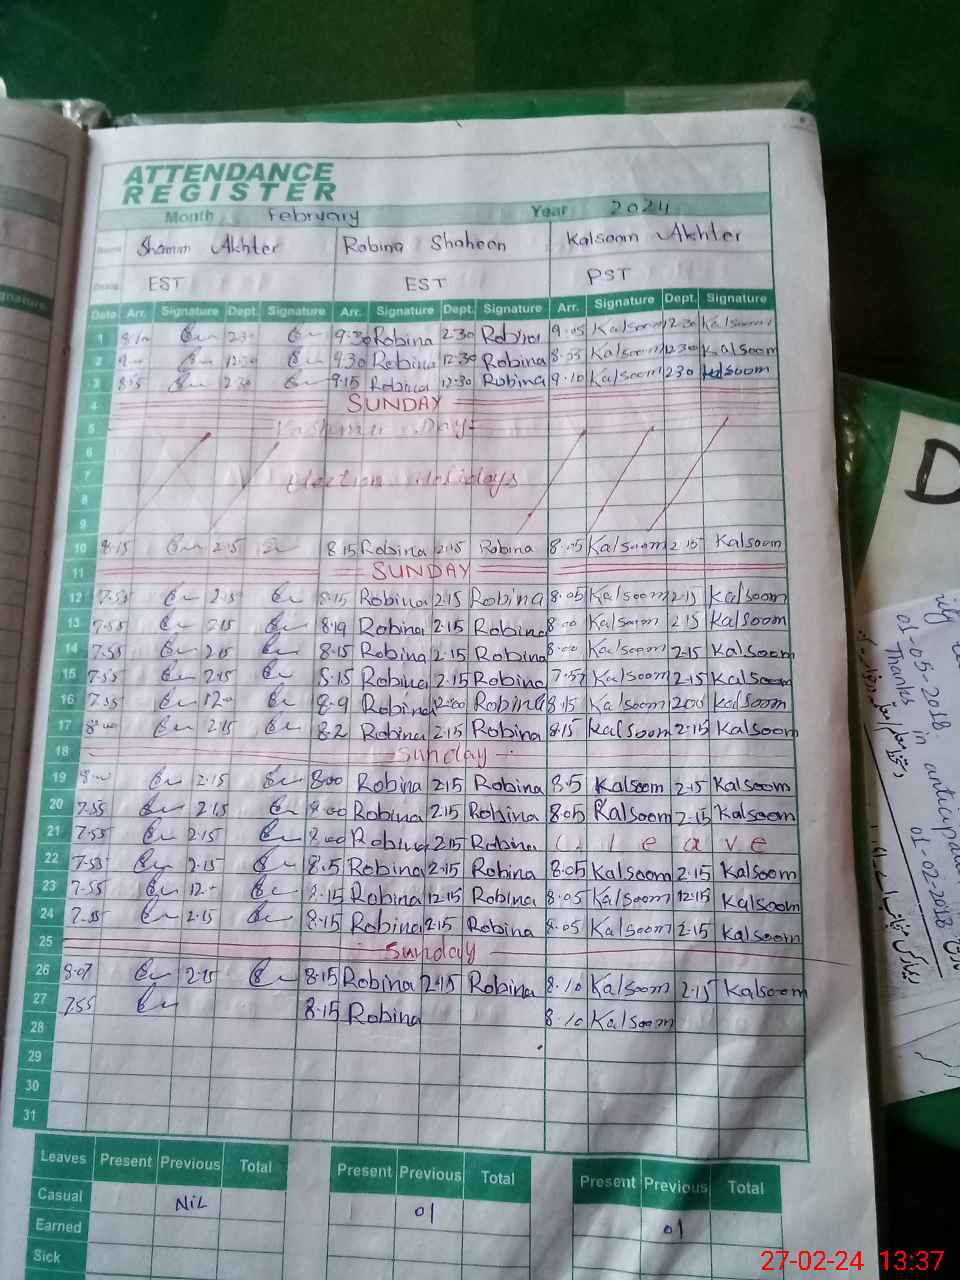 ATTENDANCE
REGISTER
Month February Year 2024
Name Shamim Akhter Robina Shaheen Kalsoom Akhter
EST EST PST
Date Arr. Signature Dept. Signature Arr. Signature Dept. Signature Arr. Signature Dept. Signature
1 2.30 9.30 Robina 2.30 Robina 9.05 Kalsoom 2.30 Kalsoom
2 12.30 9.30 Robina 12.30 Robina 8.55 Kalsoom 12.30 Kalsoom
3 2.30 9.15 Robina 12.30 Robina 9.10 Kalsoom 2.30 Kalsoom
4 SUNDAY
5 Kashmir Day
6
7 Election Holidays
8
9
10 8.15 2.15 8.15 Robina 2.15 Robina 8.05 Kalsoom 2.15 Kalsoom
11 SUNDAY
12 7.55 2.15 8.15 Robina 2.15 Robina 8.05 Kalsoom 2.15 Kalsoom
13 7.55 2.15 8.19 Robina 2.15 Robina 8.00 Kalsoom 2.15 Kalsoom
14 7.55 2.15 8.15 Robina 2.15 Robina 8.00 Kalsoom 2.15 Kalsoom
15 7.55 2.15 Robina 2.15 Robina 7.57 Kalsoom 2.15 Kalsoom
16 7.55 8.9 Robina Robina 8.15 Kalsoom Kalsoom
17 8.00 2.15 8.2 Robina 2.15 Robina 8.15 Kalsoom 2.15 Kalsoom
18 Sunday
19 8.00 2.15 8.00 Robina 2.15 Robina 8.5 Kalsoom 2.15 Kalsoom
20 7.55 2.15 8.00 Robina 2.15 Robina 8.05 Kalsoom 2.15 Kalsoom
21 7.55 2.15 8.00 Robina 2.15 Robina C. Leave
22 7.53 2.15 8.5 Robina 2.15 Robina 8.05 Kalsoom 2.15 Kalsoom
23 7.55 8.15 Robina 12.15 Robina 8.05 Kalsoom 12.15 Kalsoom
24 7.55 2.15 8.15 Robina 2.15 Robina 8.05 Kalsoom 2.15 Kalsoom
25 Sunday
26 8.07 2.15 8.15 Robina 2.15 Robina 8.10 Kalsoom 2.15 Kalsoom
27 7.55 8.15 Robina 8.10 Kalsoom
28
29
30
31
Leaves Present Previous Total Present Previous Total Present Previous Total
Casual NIL 01 01
Earned
Sick
nature
D
01-05-2018.
Thanks in anticipat
01-02-2018
27-02-24 13:37